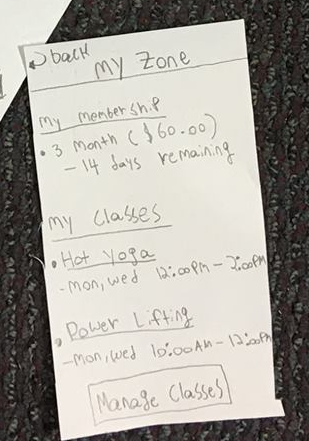 back
My Zone
My membership
• 3 month ($60.00)
- 14 days remaining
My Classes
• Hot Yoga
- Mon, wed 12:00PM - 2:00PM
• Power Lifting
- Mon, wed 10:00AM - 12:00PM
Manage Classes